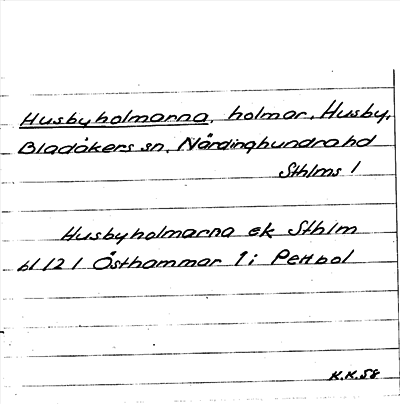 Husbyholmarna, holmar, Husby,
Bladåkers sn, Närdinghundra hd
Sthlms l
Husbyholmarna ek Sthlm
bl 121 Östhammar 1i Pettbol
K.K.58